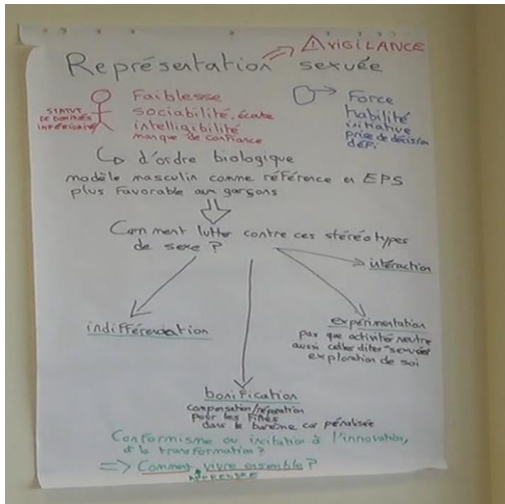 ⚠ VIGILANCE
Représentation sexuée
STATUT
DE DOMINÉS
Faiblesse
sociabilité, écoute
intelligibilité
manque de confiance
Force
habilité
initiative
prise de décision
défi
d'ordre biologique
modèle masculin comme référence en EPS
plus favorable aux garçons
Comment lutter contre ces stéréotypes
de sexe ?
intéraction
indifférenciation
expérimentation
par que activité neutre
aussi celles dites "sexuées"
exploration de soi
bonification
compensation/réparation
pour les filles
dans le barème car pénalisée
Conformisme ou incitation à l'innovation,
et la transformation ?
=> Comment vivre ensemble ?
APPRENDRE